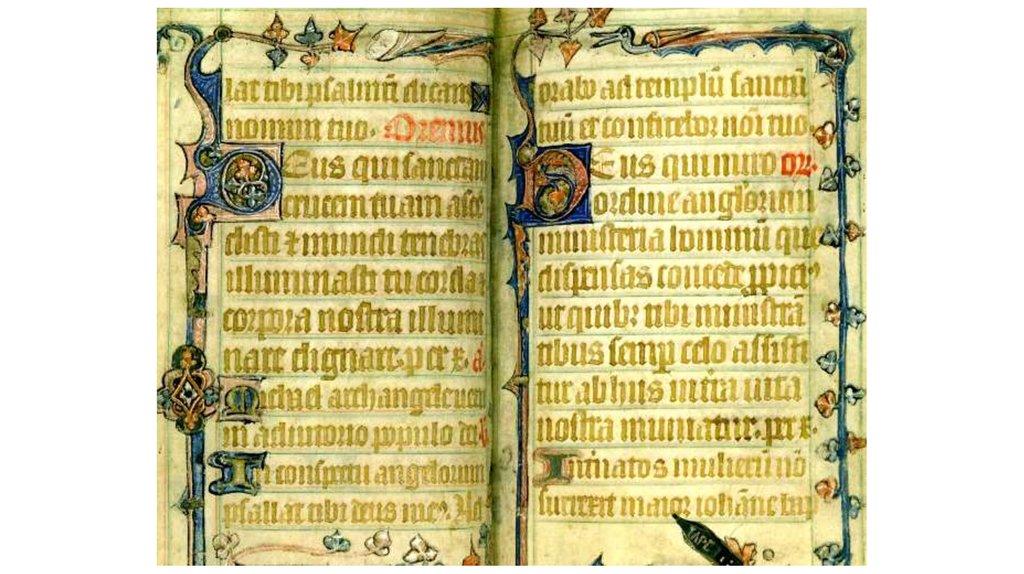 lat tibi psalmū dicam
nomini tuo. Oremus
Deus qui sanctam
crucem tuam asce
disti & mundi tenebras
illuminasti tu corda &
corpora nostra illumi
nare dignare. per x.
Michael archangele ueni
in adiutorio populo dei
In conspectu angelorum
psallat tibi deus me⁹. Ad
orabo ad templū sanctū
tuū et confitebor nōi tuo
Deus qui miro or.
ordine angelorum
ministeria hominū que
dispensas concede ꝓpici⁹
ut quib; tibi ministrā
tibus semꝑ celo assisti
tur ab hiis in terra uita
nostra muniatur. per x.
Int̄ natos mulierū nō
surrexit maior iohāne bap
TAPE